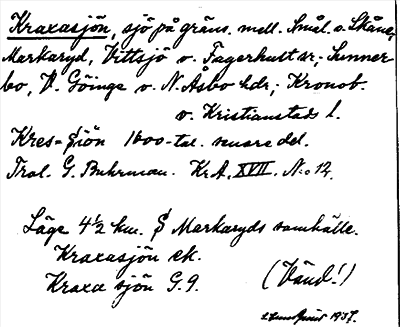 Kraxasjön, sjö på gräns. mell. Smål. o. Skåne,
Markaryd, Vittsjö o. Fagerhult sr; Sunner-
bo, V. Göinge o. N. Åsbo hdr; Kronob.
o. Kristianstads l.
Kres=Siön 1600-tal. senare del.
Trol. G. Buhrman. Kr.A. XVII. N:o 12.
Läge 4½ km. S Markaryds samhälle.
Kraxasjön ek.
Kraxa sjön G.9.
(Vänd!)
1937.